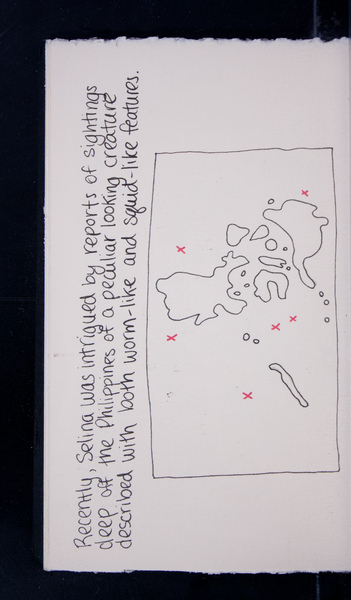 Recently, Selina was intrigued by reports of sightings
deep off the Philippines of a peculiar looking creature
described with both worm-like and squid-like features.